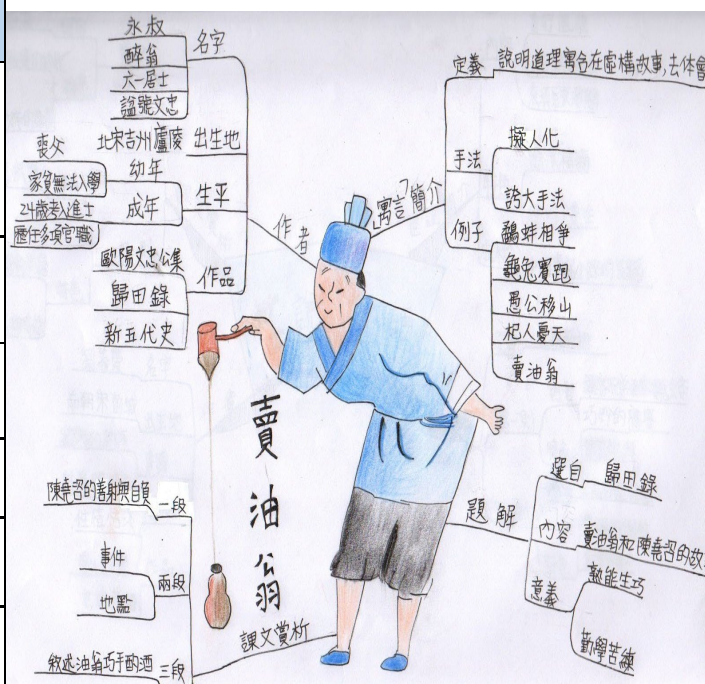 永叔
醉翁
六一居士
諡號文忠
名字
北宋吉州廬陵
出生地
喪父
家貧無法入學
幼年
24歲考入進士
歷任多項官職
成年
生平
歐陽文忠公集
歸田錄
新五代史
作品
作者
寓言簡介
定義
說明道理寓含在虛構故事,去体會
手法
擬人化
誇大手法
例子
鷸蚌相爭
龜兔賽跑
愚公移山
杞人憂天
賣油翁
賣油翁
題解
選自
歸田錄
內容
賣油翁和陳堯咨的故
意義
熟能生巧
勤學苦練
課文賞析
陳堯咨的善射與自負
一段
事件
地點
兩段
敘述油翁巧手酌酒
三段